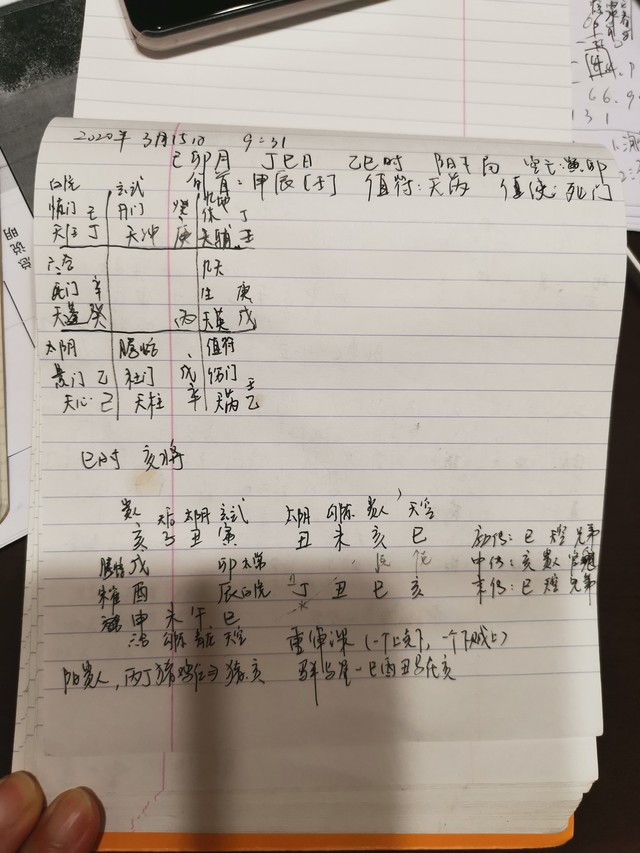 2020年 3月15日 9:31
己卯月 丁巳日 乙巳时 阳 局 空亡:寅卯
旬首:甲辰[壬] 值符:天芮 值使:死门
白虎 玄武 九地
惊门 壬 开门 癸 休 丁
天任 丁 天冲 庚 天辅 壬
六合 九天
死门 辛 生 庚
天蓬 癸 丙 天英 戊
太阴 螣蛇 值符
景门 乙 杜门 戊 伤门 壬
天心 己 天柱 辛 天芮 乙
巳时 亥将
贵人 天后 太阴 玄武 太阴 勾陈 贵人 天空
亥 子 丑 寅 丑 未 亥 巳 初传:巳 天空 兄弟
螣蛇 戌 卯 太常 中传:亥 贵人 官鬼
朱雀 酉 辰 白虎 丁 丑 巳 亥 末传:巳 天空 兄弟
申 未 午 巳
勾陈 青龙 天空 重审课 (一个上克下,一个下贼上)
阳贵人,丙丁猪鸡位 猪亥 驿马星-巳酉丑马在亥
总说明
66.9
131